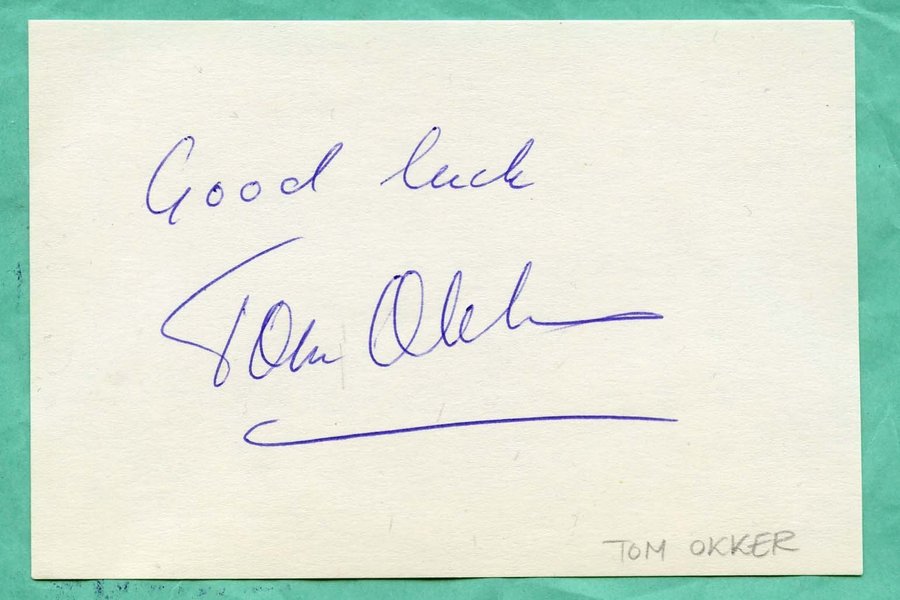 Good luck
Tom Okker
TOM OKKER